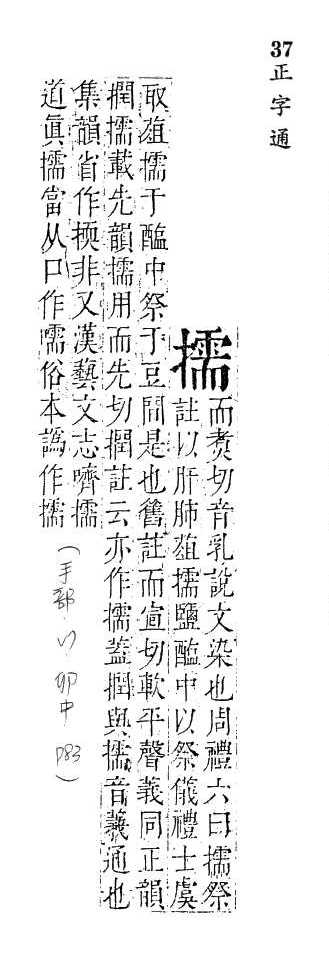 37正字通
擩
而煑切音乳說文染也周禮六曰擩祭
註以肝肺葅擩鹽醢中以祭儀禮士虞
取葅擩于醢中祭于豆間是也舊註而宣切軟平聲義同正韻
撋擩載先韻擩用而先切撋註云亦作擩蓋撋與擩音義通也
集韻省作㨎非又漢藝文志嚌擩
道眞擩當从口作嚅俗本譌作擩
(手部 卯中 P83)